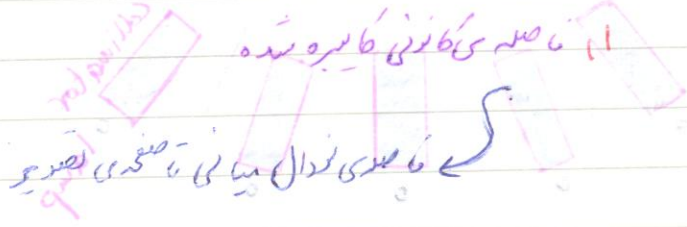 ۱) فاصله ی کانونی کالیبره شده
فاصله ی نودال میانی تا صفحه ی تصویر